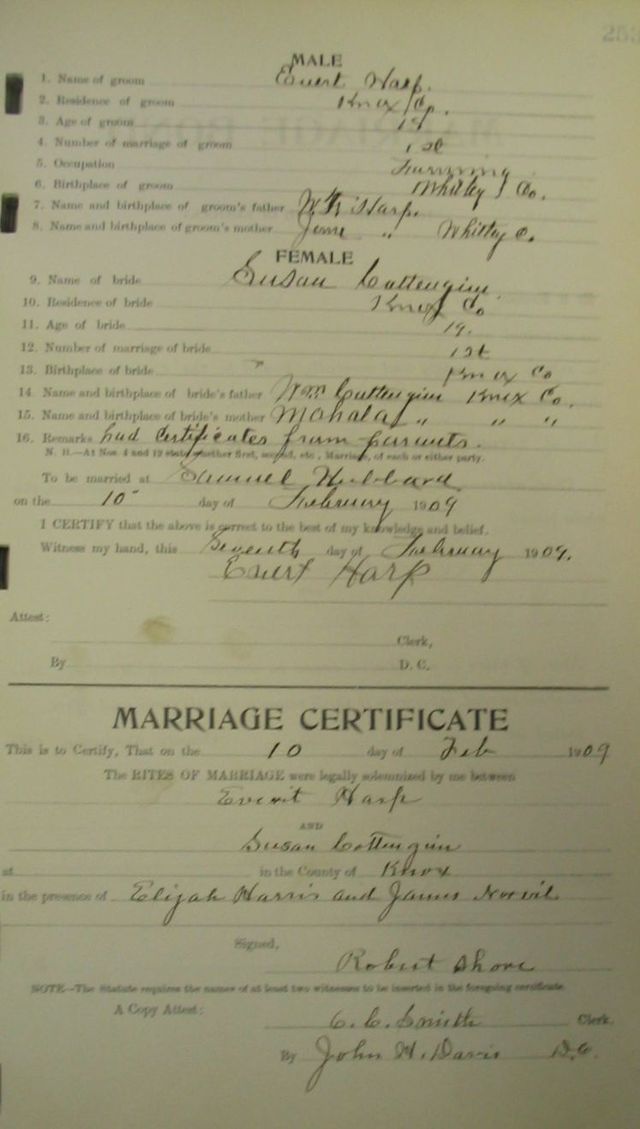 253
MALE
1. Name of groom Evert Harp.
2. Residence of groom Knox Co.
3. Age of groom
4. Number of marriage of groom 1st
5. Occupation Farming
6. Birthplace of groom Whitley Co.
7. Name and birthplace of groom's father Harp.
8. Name and birthplace of groom's mother Jane " Whitley Co.
FEMALE
9. Name of bride Susan Cottengim
10. Residence of bride Knox Co
11. Age of bride 19.
12. Number of marriage of bride 1st
13. Birthplace of bride Knox Co
14. Name and birthplace of bride's father Wm Cottengim Knox Co.
15. Name and birthplace of bride's mother Mahala " " "
16. Remarks had certificates from parents.
N. B.—At Nos. 4 and 12 state whether first, second, etc., Marriage, of each or either party.
To be married at Samuel Hubbard
on the 10 day of February 1909
I CERTIFY that the above is correct to the best of my knowledge and belief.
Witness my hand, this Seventh day of February 1909.
Evert Harp
Attest:
Clerk,
By D. C.
MARRIAGE CERTIFICATE
This is to Certify, That on the 10 day of Feb 1909
The RITES OF MARRIAGE were legally solemnized by me between
Everit Harp
AND
Susan Cottengim
at in the County of Knox
in the presence of Elijah Harris and James Norvil
Signed,
Robert Shore
NOTE—The Statute requires the names of at least two witnesses to be inserted in the foregoing certificate.
A Copy Attest:
C. C. Smith Clerk
By John H. Davis D.C.